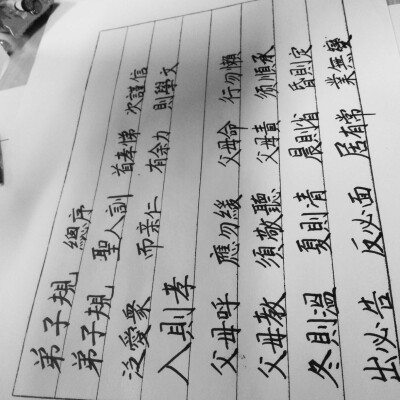 弟子規 總序
弟子規 聖人訓 首孝悌 次謹信
泛愛衆 而亲仁 有余力 則學文
入則孝
父母呼 應勿緩 父母命 行勿懶
父母教 須敬聽 父母責 须順承
冬則溫 夏則清 晨則省 昏則定
出必告 反必面 居有常 業無變